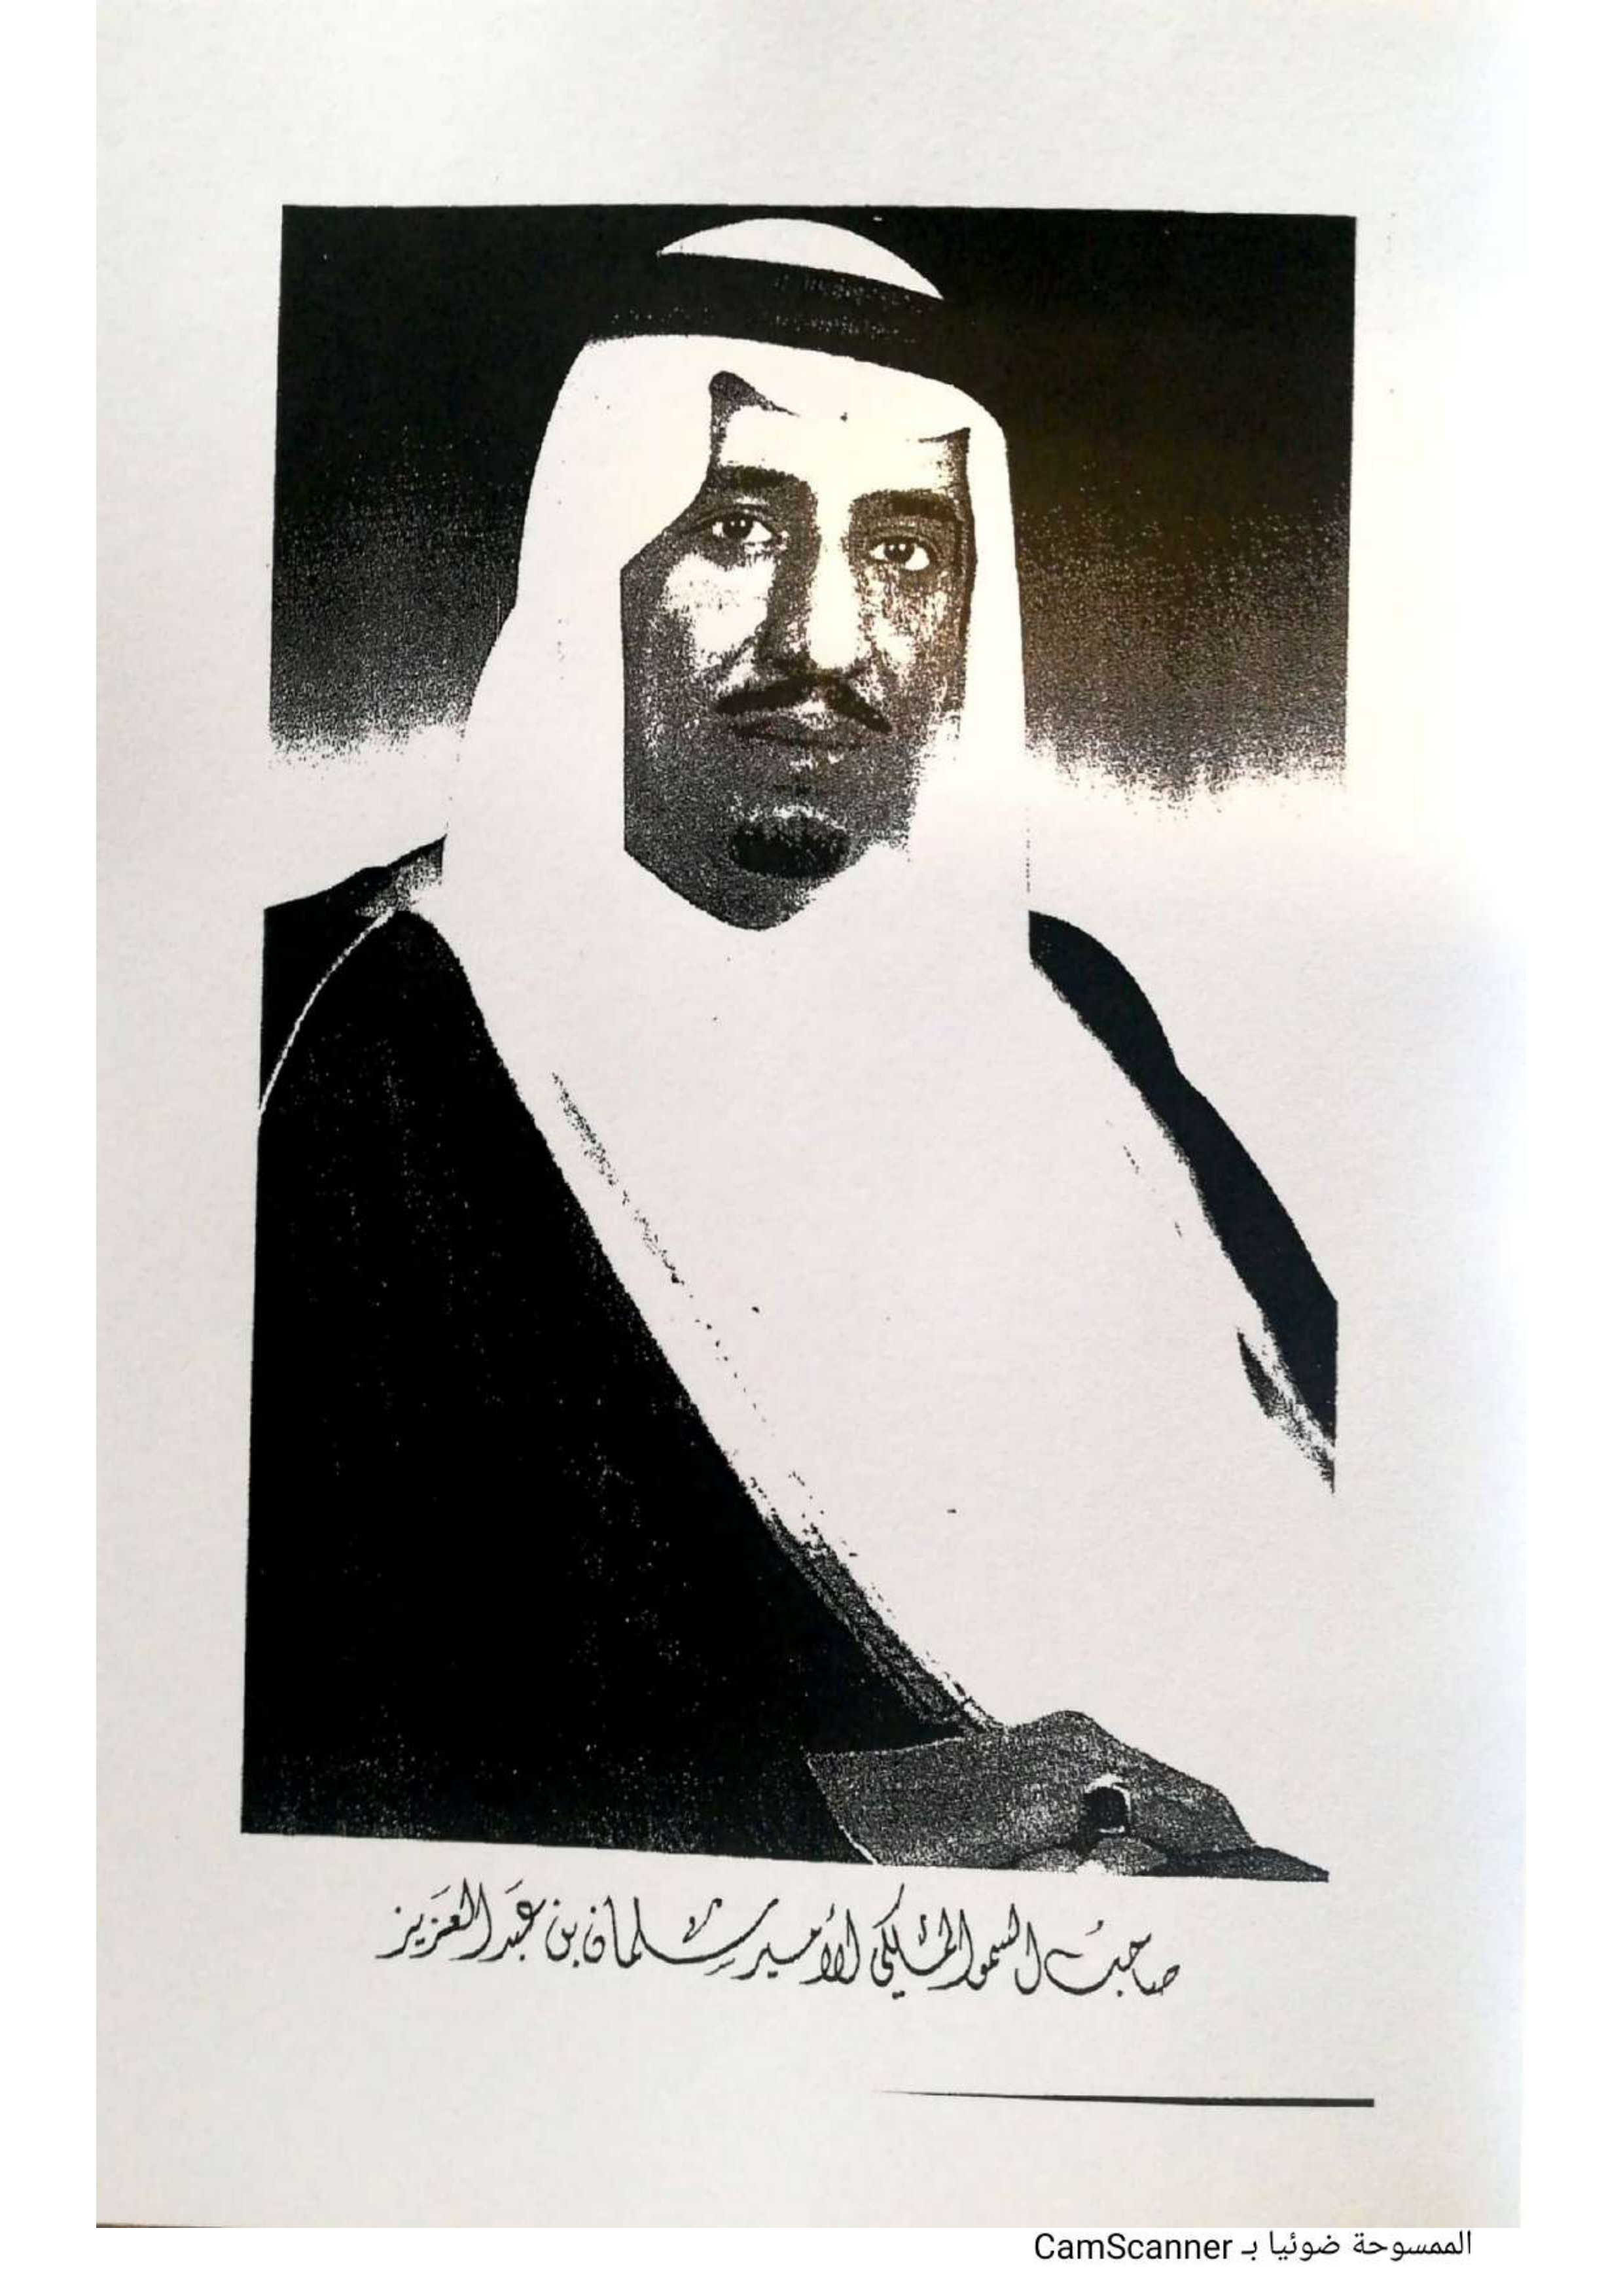 صاحب السمو الملكي الأمير سلمان بن عبد العزيز
الممسوحة ضوئيا بـ CamScanner